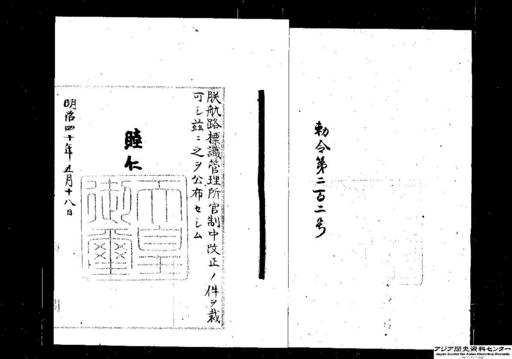 勅令第二百二号
朕航路標識管理所官制中改正ノ件ヲ裁
可シ茲ニ之ヲ公布セシム
睦仁
天皇
御璽
明治四十年五月十八日
アジア歴史資料センター
Japan Center for Asian Historical Records